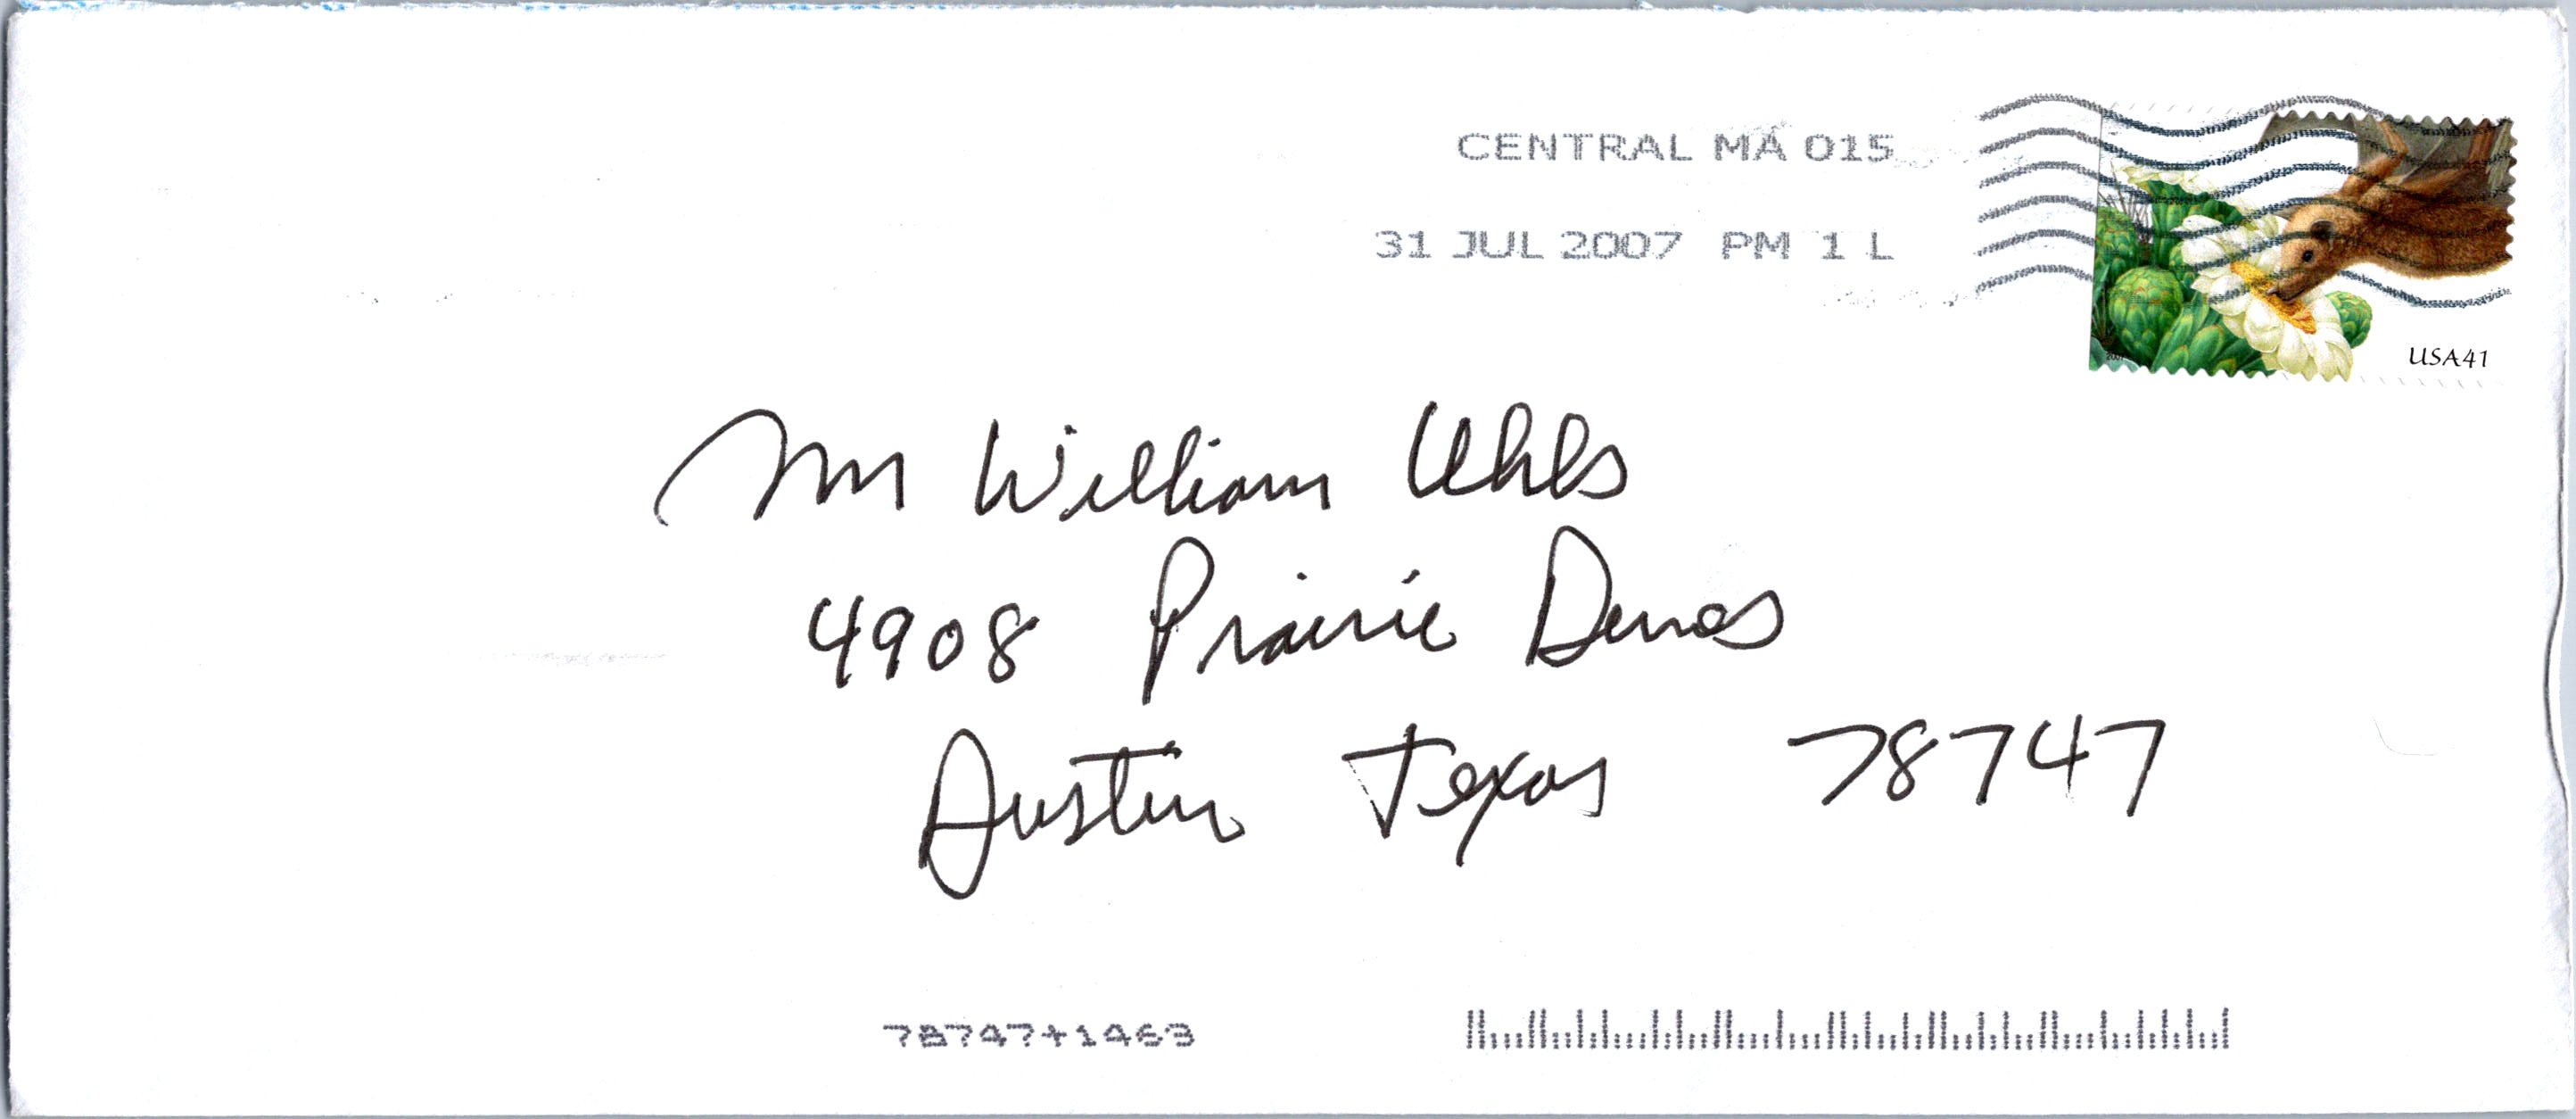 CENTRAL MA 015
31 JUL 2007 PM 1 L
USA41
2007
Mr William Uhls
4908 Prairie Dunes
Austin Texas 78747
78747+1463